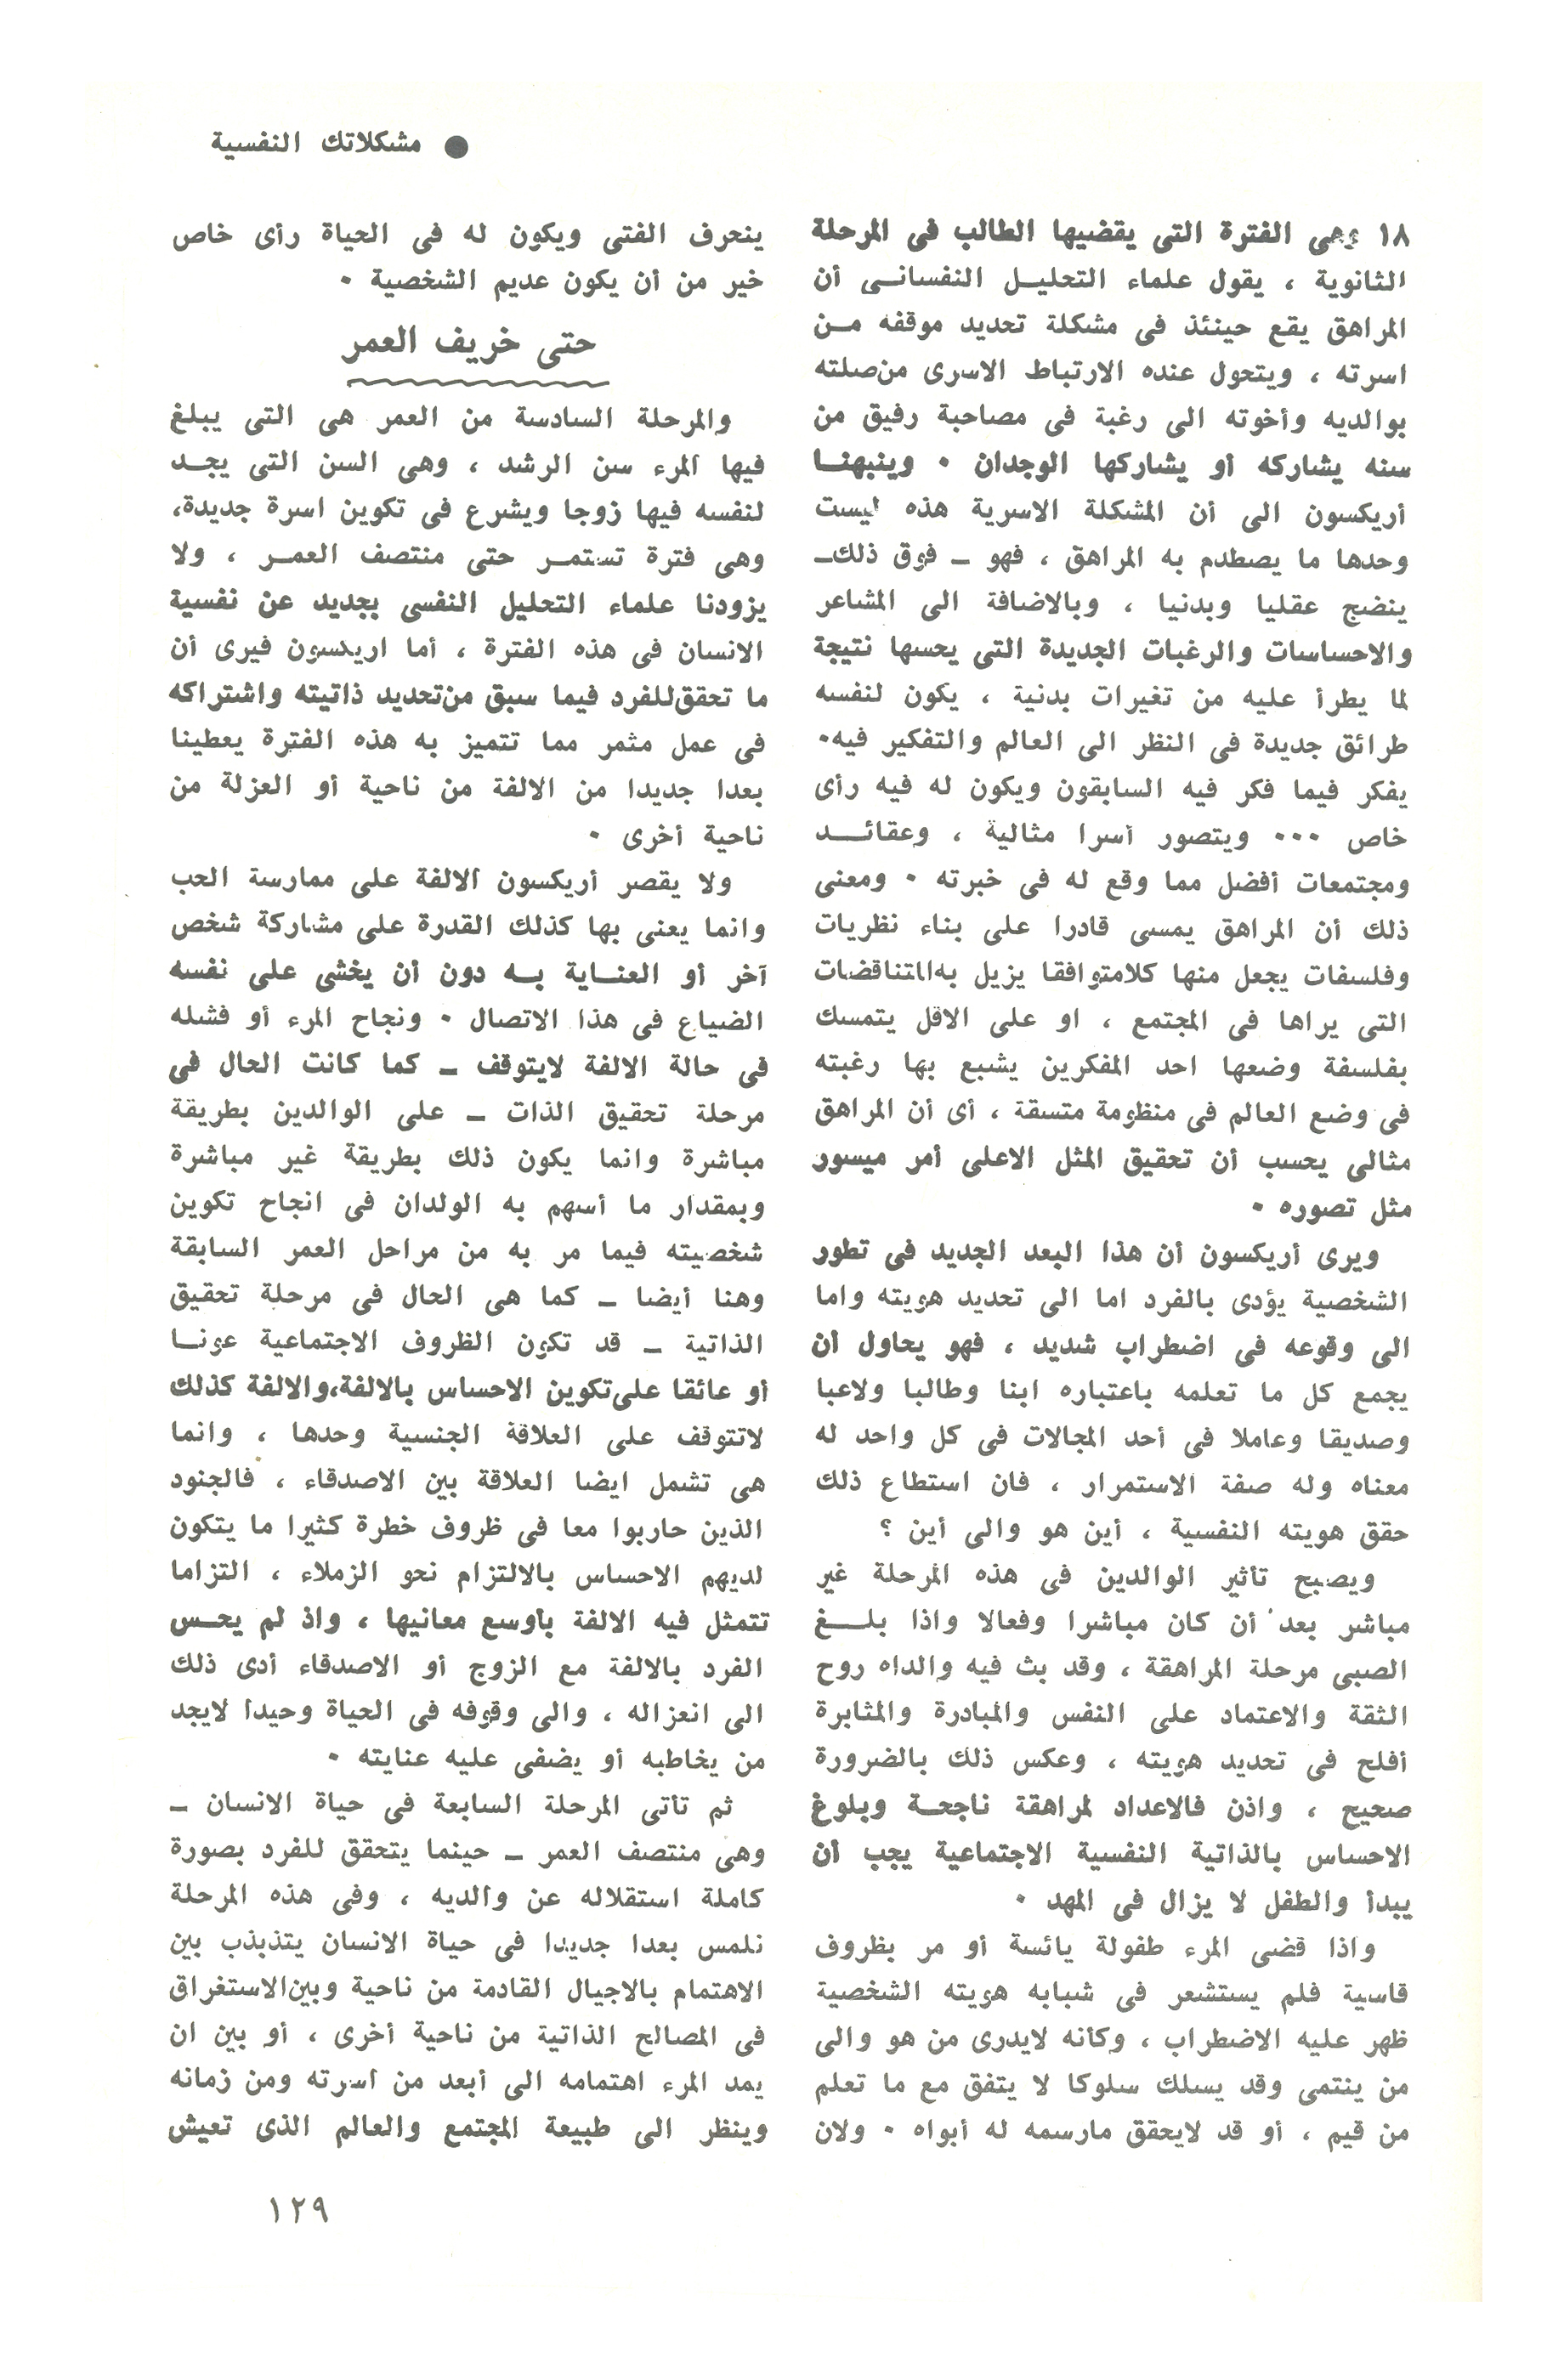 ● مشكلاتك النفسية
١٨ وهى الفترة التى يقضيها الطالب فى المرحلة
الثانوية ، يقول علماء التحليل النفسانى أن
المراهق يقع حينئذ فى مشكلة تحديد موقفه من
اسرته ، ويتحول عنده الارتباط الاسرى من صلته
بوالديه وأخوته الى رغبة فى مصاحبة رفيق من
سنه يشاركه أو يشاركها الوجدان ٠ وينبهنا
أريكسون الى أن المشكلة الاسرية هذه ليست
وحدها ما يصطدم به المراهق ، فهو ـ فوق ذلك ـ
ينضج عقليا وبدنيا ، وبالاضافة الى المشاعر
والاحساسات والرغبات الجديدة التى يحسها نتيجة
لما يطرأ عليه من تغيرات بدنية ، يكون لنفسه
طرائق جديدة فى النظر الى العالم والتفكير فيه٠
يفكر فيما فكر فيه السابقون ويكون له فيه رأى
خاص ٠٠٠ ويتصور أسرا مثالية ، وعقائد
ومجتمعات أفضل مما وقع له فى خبرته ٠ ومعنى
ذلك أن المراهق يمسى قادرا على بناء نظريات
وفلسفات يجعل منها كلا متوافقا يزيل به المتناقضات
التى يراها فى المجتمع ، او على الاقل يتمسك
بفلسفة وضعها احد المفكرين يشبع بها رغبته
فى وضع العالم فى منظومة متسقة ، أى أن المراهق
مثالى يحسب أن تحقيق المثل الاعلى أمر ميسور
مثل تصوره ٠
ويرى أريكسون أن هذا البعد الجديد فى تطور
الشخصية يؤدى بالفرد اما الى تحديد هويته واما
الى وقوعه فى اضطراب شديد ، فهو يحاول أن
يجمع كل ما تعلمه باعتباره ابنا وطالبا ولاعبا
وصديقا وعاملا فى أحد المجالات فى كل واحد له
معناه وله صفة الاستمرار ، فان استطاع ذلك
حقق هويته النفسية ، أين هو والى أين ؟
ويصبح تأثير الوالدين فى هذه المرحلة غير
مباشر بعد أن كان مباشرا وفعالا واذا بلغ
الصبى مرحلة المراهقة ، وقد بث فيه والداه روح
الثقة والاعتماد على النفس والمبادرة والمثابرة
أفلح فى تحديد هويته ، وعكس ذلك بالضرورة
صحيح ، واذن فالاعداد لمراهقة ناجحة وبلوغ
الاحساس بالذاتية النفسية الاجتماعية يجب أن
يبدأ والطفل لا يزال فى المهد ٠
واذا قضى المرء طفولة يائسة أو مر بظروف
قاسية فلم يستشعر فى شبابه هويته الشخصية
ظهر عليه الاضطراب ، وكأنه لايدرى من هو والى
من ينتمى وقد يسلك سلوكا لا يتفق مع ما تعلم
من قيم ، أو قد لايحقق مارسمه له أبواه ٠ ولان
ينحرف الفتى ويكون له فى الحياة رأى خاص
خير من أن يكون عديم الشخصية ٠
حتى خريف العمر
والمرحلة السادسة من العمر هى التى يبلغ
فيها المرء سن الرشد ، وهى السن التى يجد
لنفسه فيها زوجا ويشرع فى تكوين اسرة جديدة،
وهى فترة تستمر حتى منتصف العمر ، ولا
يزودنا علماء التحليل النفسى بجديد عن نفسية
الانسان فى هذه الفترة ، أما اريكسون فيرى أن
ما تحقق للفرد فيما سبق من تحديد ذاتيته واشتراكه
فى عمل مثمر مما تتميز به هذه الفترة يعطينا
بعدا جديدا من الالفة من ناحية أو العزلة من
ناحية أخرى ٠
ولا يقصر أريكسون الالفة على ممارسة الحب
وانما يعنى بها كذلك القدرة على مشاركة شخص
آخر أو العناية به دون أن يخشى على نفسه
الضياع فى هذا الاتصال ٠ ونجاح المرء أو فشله
فى حالة الالفة لايتوقف ـ كما كانت الحال فى
مرحلة تحقيق الذات ـ على الوالدين بطريقة
مباشرة وانما يكون ذلك بطريقة غير مباشرة
وبمقدار ما أسهم به الولدان فى انجاح تكوين
شخصيته فيما مر به من مراحل العمر السابقة
وهنا أيضا ـ كما هى الحال فى مرحلة تحقيق
الذاتية ـ قد تكون الظروف الاجتماعية عونا
أو عائقا على تكوين الاحساس بالالفة،والالفة كذلك
لاتتوقف على العلاقة الجنسية وحدها ، وانما
هى تشمل ايضا العلاقة بين الاصدقاء ، فالجنود
الذين حاربوا معا فى ظروف خطرة كثيرا ما يتكون
لديهم الاحساس بالالتزام نحو الزملاء ، التزاما
تتمثل فيه الالفة بأوسع معانيها ، واذ لم يحس
الفرد بالالفة مع الزوج أو الاصدقاء أدى ذلك
الى انعزاله ، والى وقوفه فى الحياة وحيدا لايجد
من يخاطبه أو يضفى عليه عنايته ٠
ثم تأتى المرحلة السابعة فى حياة الانسان ـ
وهى منتصف العمر ـ حينما يتحقق للفرد بصورة
كاملة استقلاله عن والديه ، وفى هذه المرحلة
نلمس بعدا جديدا فى حياة الانسان يتذبذب بين
الاهتمام بالاجيال القادمة من ناحية وبين الاستغراق
فى المصالح الذاتية من ناحية أخرى ، أو بين ان
يمد المرء اهتمامه الى أبعد من أسرته ومن زمانه
وينظر الى طبيعة المجتمع والعالم الذى تعيش
١٢٩